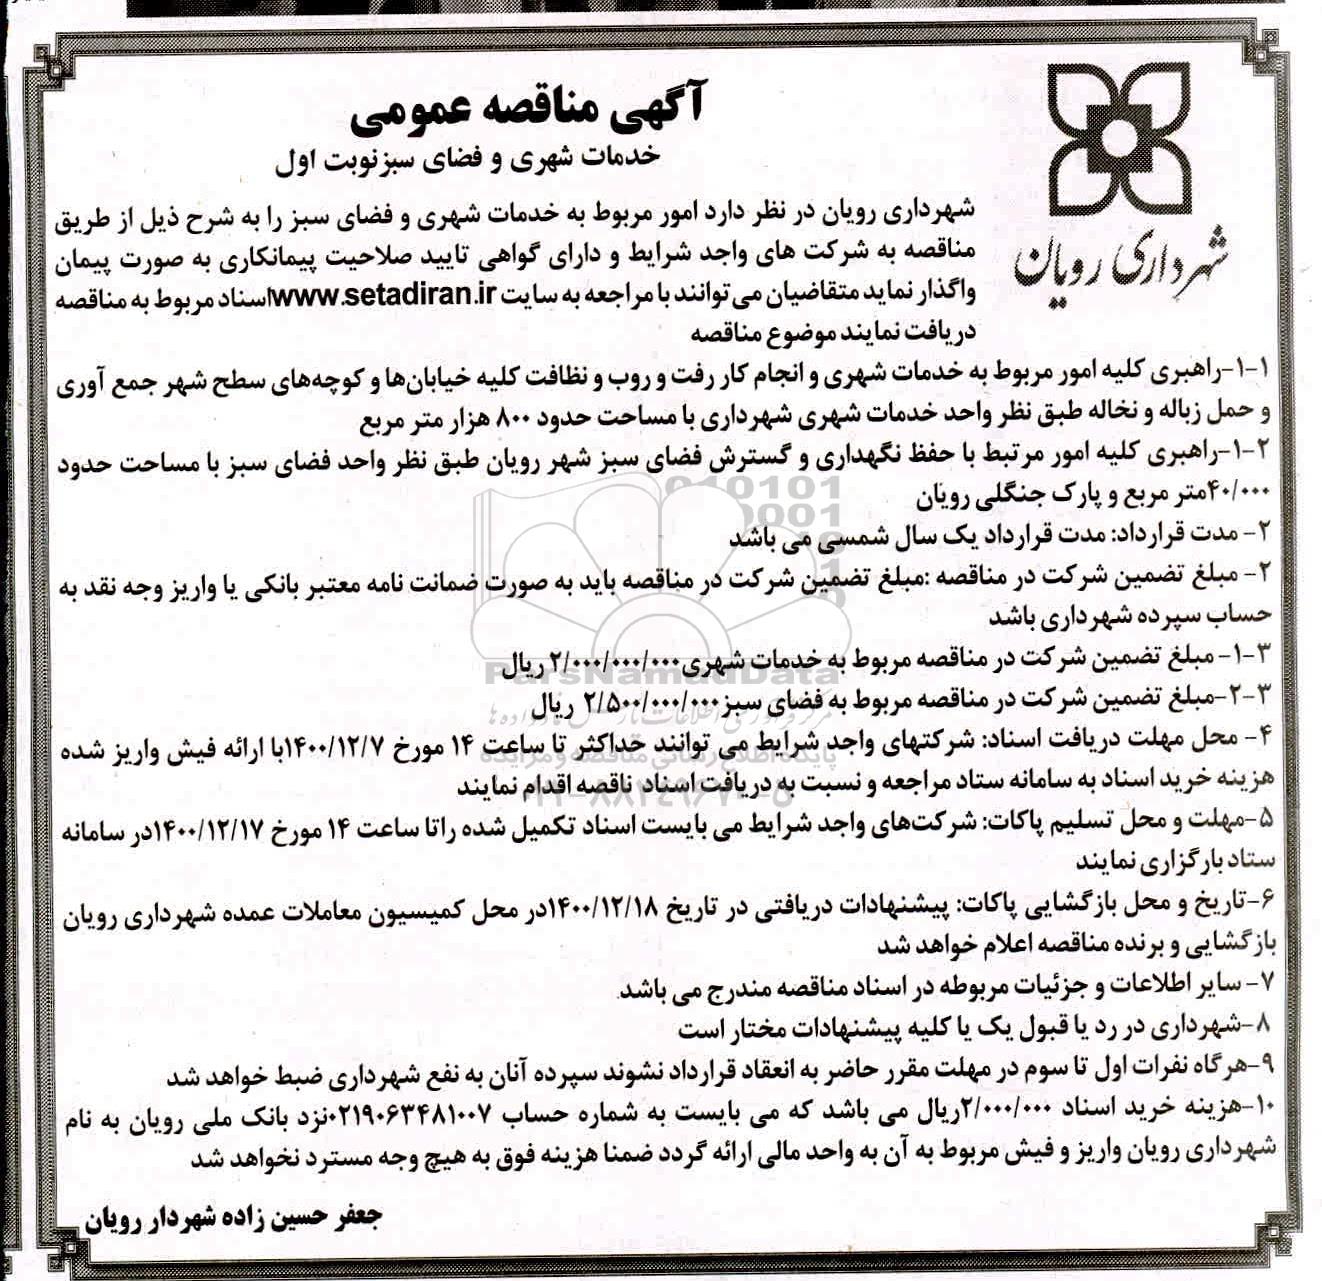 آگهی مناقصه عمومی
خدمات شهری و فضای سبزنوبت اول
شهرداری رویان
شهرداری رویان در نظر دارد امور مربوط به خدمات شهری و فضای سبز را به شرح ذیل از طریق
مناقصه به شرکت های واجد شرایط و دارای گواهی تایید صلاحیت پیمانکاری به صورت پیمان
واگذار نماید متقاضیان می‌توانند با مراجعه به سایت www.setadiran.ir اسناد مربوط به مناقصه
دریافت نمایند موضوع مناقصه
۱-۱-راهبری کلیه امور مربوط به خدمات شهری و انجام کار رفت و روب و نظافت کلیه خیابان‌ها و کوچه‌های سطح شهر جمع آوری
و حمل زباله و نخاله طبق نظر واحد خدمات شهری شهرداری با مساحت حدود ۸۰۰ هزار متر مربع
۱-۲-راهبری کلیه امور مرتبط با حفظ نگهداری و گسترش فضای سبز شهر رویان طبق نظر واحد فضای سبز با مساحت حدود
۴۰/۰۰۰متر مربع و پارک جنگلی رویان
۲- مدت قرارداد: مدت قرارداد یک سال شمسی می باشد
۲- مبلغ تضمین شرکت در مناقصه :مبلغ تضمین شرکت در مناقصه باید به صورت ضمانت نامه معتبر بانکی یا واریز وجه نقد به
حساب سپرده شهرداری باشد
۳-۱- مبلغ تضمین شرکت در مناقصه مربوط به خدمات شهری۲/۰۰۰/۰۰۰/۰۰۰ ریال
۳-۲-مبلغ تضمین شرکت در مناقصه مربوط به فضای سبز۲/۵۰۰/۰۰۰/۰۰۰ ریال
۴- محل مهلت دریافت اسناد: شرکتهای واجد شرایط می توانند حداکثر تا ساعت ۱۴ مورخ ۱۴۰۰/۱۲/۷با ارائه فیش واریز شده
هزینه خرید اسناد به سامانه ستاد مراجعه و نسبت به دریافت اسناد ناقصه اقدام نمایند
۵-مهلت و محل تسلیم پاکات: شرکت‌های واجد شرایط می بایست اسناد تکمیل شده راتا ساعت ۱۴ مورخ ۱۴۰۰/۱۲/۱۷در سامانه
ستاد بارگزاری نمایند
۶-تاریخ و محل بازگشایی پاکات: پیشنهادات دریافتی در تاریخ ۱۴۰۰/۱۲/۱۸در محل کمیسیون معاملات عمده شهرداری رویان
بازگشایی و برنده مناقصه اعلام خواهد شد
۷- سایر اطلاعات و جزئیات مربوطه در اسناد مناقصه مندرج می باشد.
۸-شهرداری در رد یا قبول یک یا کلیه پیشنهادات مختار است
۹-هرگاه نفرات اول تا سوم در مهلت مقرر حاضر به انعقاد قرارداد نشوند سپرده آنان به نفع شهرداری ضبط خواهد شد
۱۰-هزینه خرید اسناد ۲/۰۰۰/۰۰۰ریال می باشد که می بایست به شماره حساب ۰۲۱۹۰۶۳۴۸۱۰۰۷نزد بانک ملی رویان به نام
شهرداری رویان واریز و فیش مربوط به آن به واحد مالی ارائه گردد ضمنا هزینه فوق به هیچ وجه مسترد نخواهد شد
جعفر حسین زاده شهردار رویان
ParsNamadData
پایگاه اطلاع رسانی مناقصه و مزایده